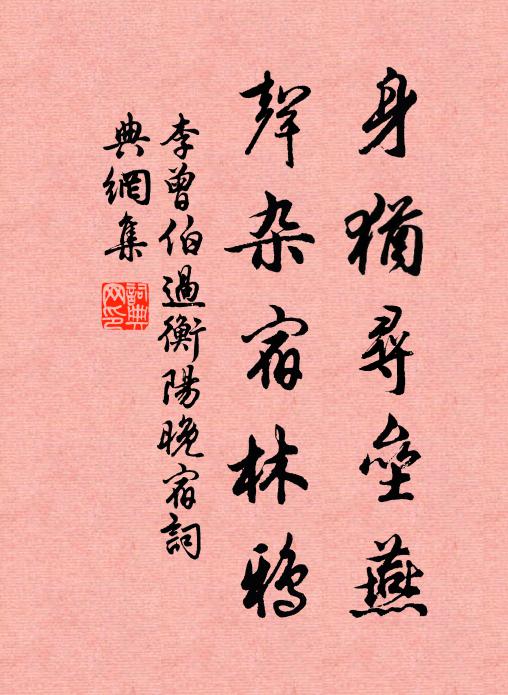 身猶尋壘燕
聲杂宿林鴉
李曾伯過衡陽晚宿詞
典網集
詞典網印